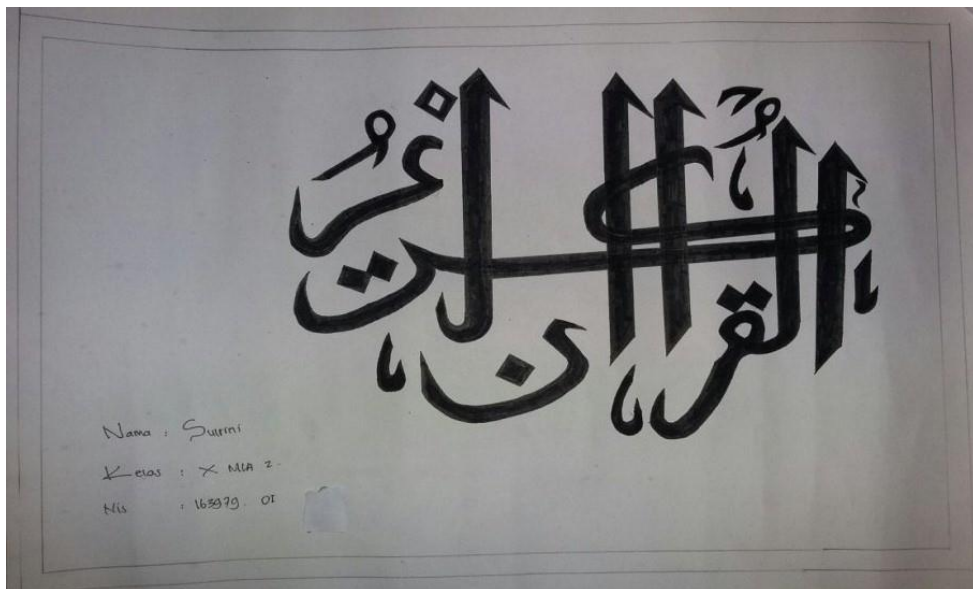 القرآن الكريم
Nama :
Kelas : X MIA 2.
Nis : 163979. 01